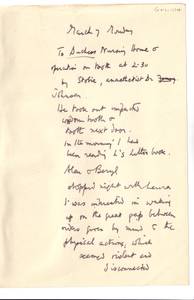 March 7 Monday
To Duchess Nursing Home &
operation on tooth at 2.30
by Stobie, anaesthetist Dr
Johnson.
He took out impacted
wisdom tooth &
tooth next door.
In the morning I had
been reading
Alan & Beryl
stopped night with
I was interested in waking
up on the great gap between
orders given by mind & the
physical actions, which
seemed violent and
disconnected